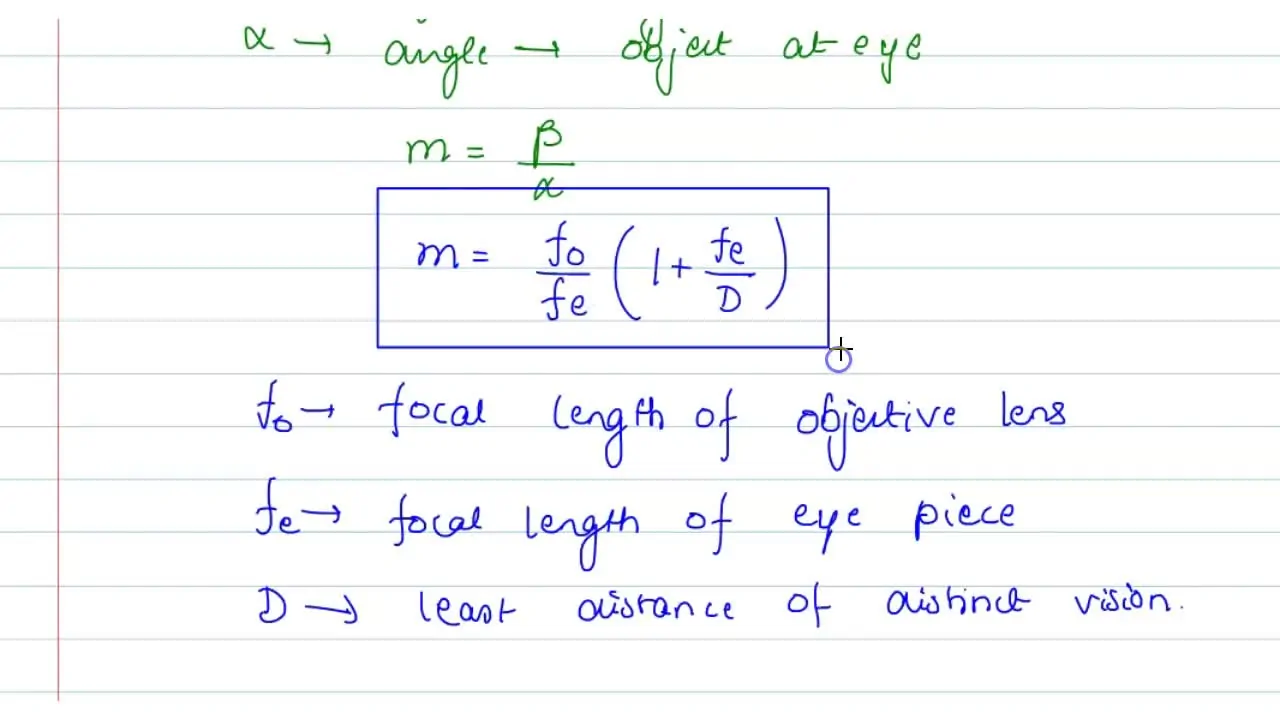 α → angle → object at eye
m = β/α
m = fo/fe (1 + fe/D)
fo → focal length of objective lens
fe → focal length of eye piece
D → least distance of distinct vision.